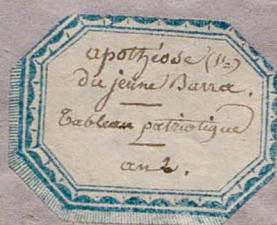 apothéose (l')
du jeune Barra.
Tableau patriotique
an 2.